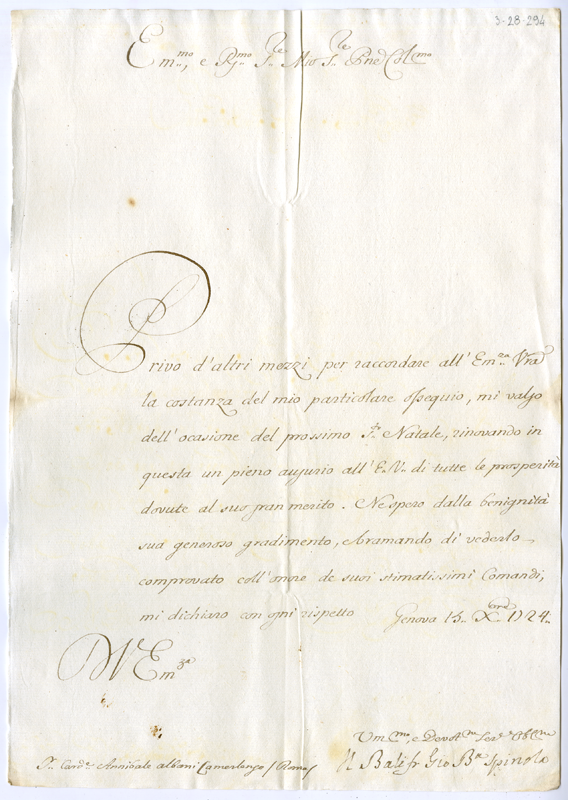 3-28-294
Em.mo, e Rm.mo S.re Mio S.re Pne Col.mo
Privo d'altri mezzi per raccordare all' Em.za Vra
la costanza del mio particolare ossequio, mi valgo
dell'ocasione del prossimo S.to Natale, rinovando in
questa un pieno augurio all' E. V. di tutte le prosperità
dovute al suo gran merito. Ne spero dalla benignità
sua generoso gradimento, e bramando di vederlo
comprovato coll'onore de suoi stimatissimi Comandi,
mi dichiaro con ogni rispetto Genova 15. Xbre 1724.
D V Em.za
Um.mo, e Devot.mo Ser.re Obl.mo
Il Balì fr Gio Bta Spinola
S.r Card.e Annibale Albani Camerlengo / Roma /